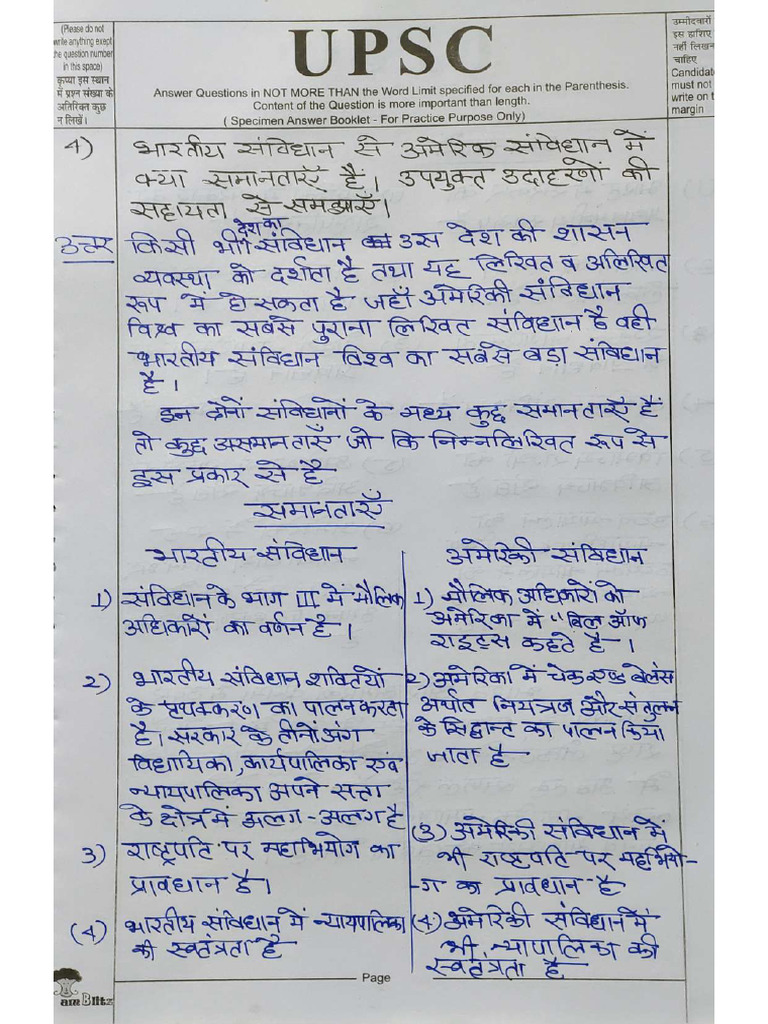 (Please do not
write anything exept
the question number
in this space)
कृप्या इस स्थान
में प्रश्न संख्या के
अतिरिक्त कुछ
न लिखें।
UPSC
Answer Questions in NOT MORE THAN the Word Limit specified for each in the Parenthesis.
Content of the Question is more important than length.
( Specimen Answer Booklet - For Practice Purpose Only)
उम्मीदवारों
इस हाशिए
नहीं लिखन
चाहिए
Candidat
must not
write on t
margin
4) भारतीय संविधान से अमेरिक संविधान में
क्या समानताएँ है। उपयुक्त उदाहरणों की
सहायता से समझाएँ।
उत्तर किसी भी देश का संविधान उस देश की शासन
व्यवस्था को दर्शाता है तथा यह लिखित व अलिखित
रूप में हो सकता है जहाँ अमेरिकी संविधान
विश्व का सबसे पुराना लिखित संविधान है वही
भारतीय संविधान विश्व का सबसे बडा संविधान
है।
इन दोनों संविधानों के मध्य कुछ समानताएँ हैं
तो कुछ असमानताएँ जो कि निम्नलिखित रूप से
इस प्रकार से है
समानताएँ
भारतीय संविधान
1) संविधान के भाग III में मौलिक
अधिकारों का वर्णन है।
2) भारतीय संविधान शक्तियों
के पृथक्करण का पालन करता
है। सरकार के तीनों अंग
विधायिका, कार्यपालिका एवं
न्यायपालिका अपने सत्ता
के क्षेत्र में अलग-अलग है
3) राष्ट्रपति पर महाभियोग का
प्रावधान है।
(4) भारतीय संविधान में न्यायपालिका
की स्वतंत्रता है
अमेरिकी संविधान
1) मौलिक अधिकारों को
अमेरिका में "बिल ऑफ
राइट्स कहते है।
2) अमेरिका में चेक एण्ड बेलेंस
अर्थात नियत्रण और संतुलन
के सिद्वान्ट का पालन किया
जाता है
(3) अमेरिकी संविधान में
भी राष्ट्रपति पर महाभियो-
-ग का प्रावधान है
(4) अमेरिकी संविधान में
भी न्यापालिका की
स्वतंत्रता है
Page
am Blitz